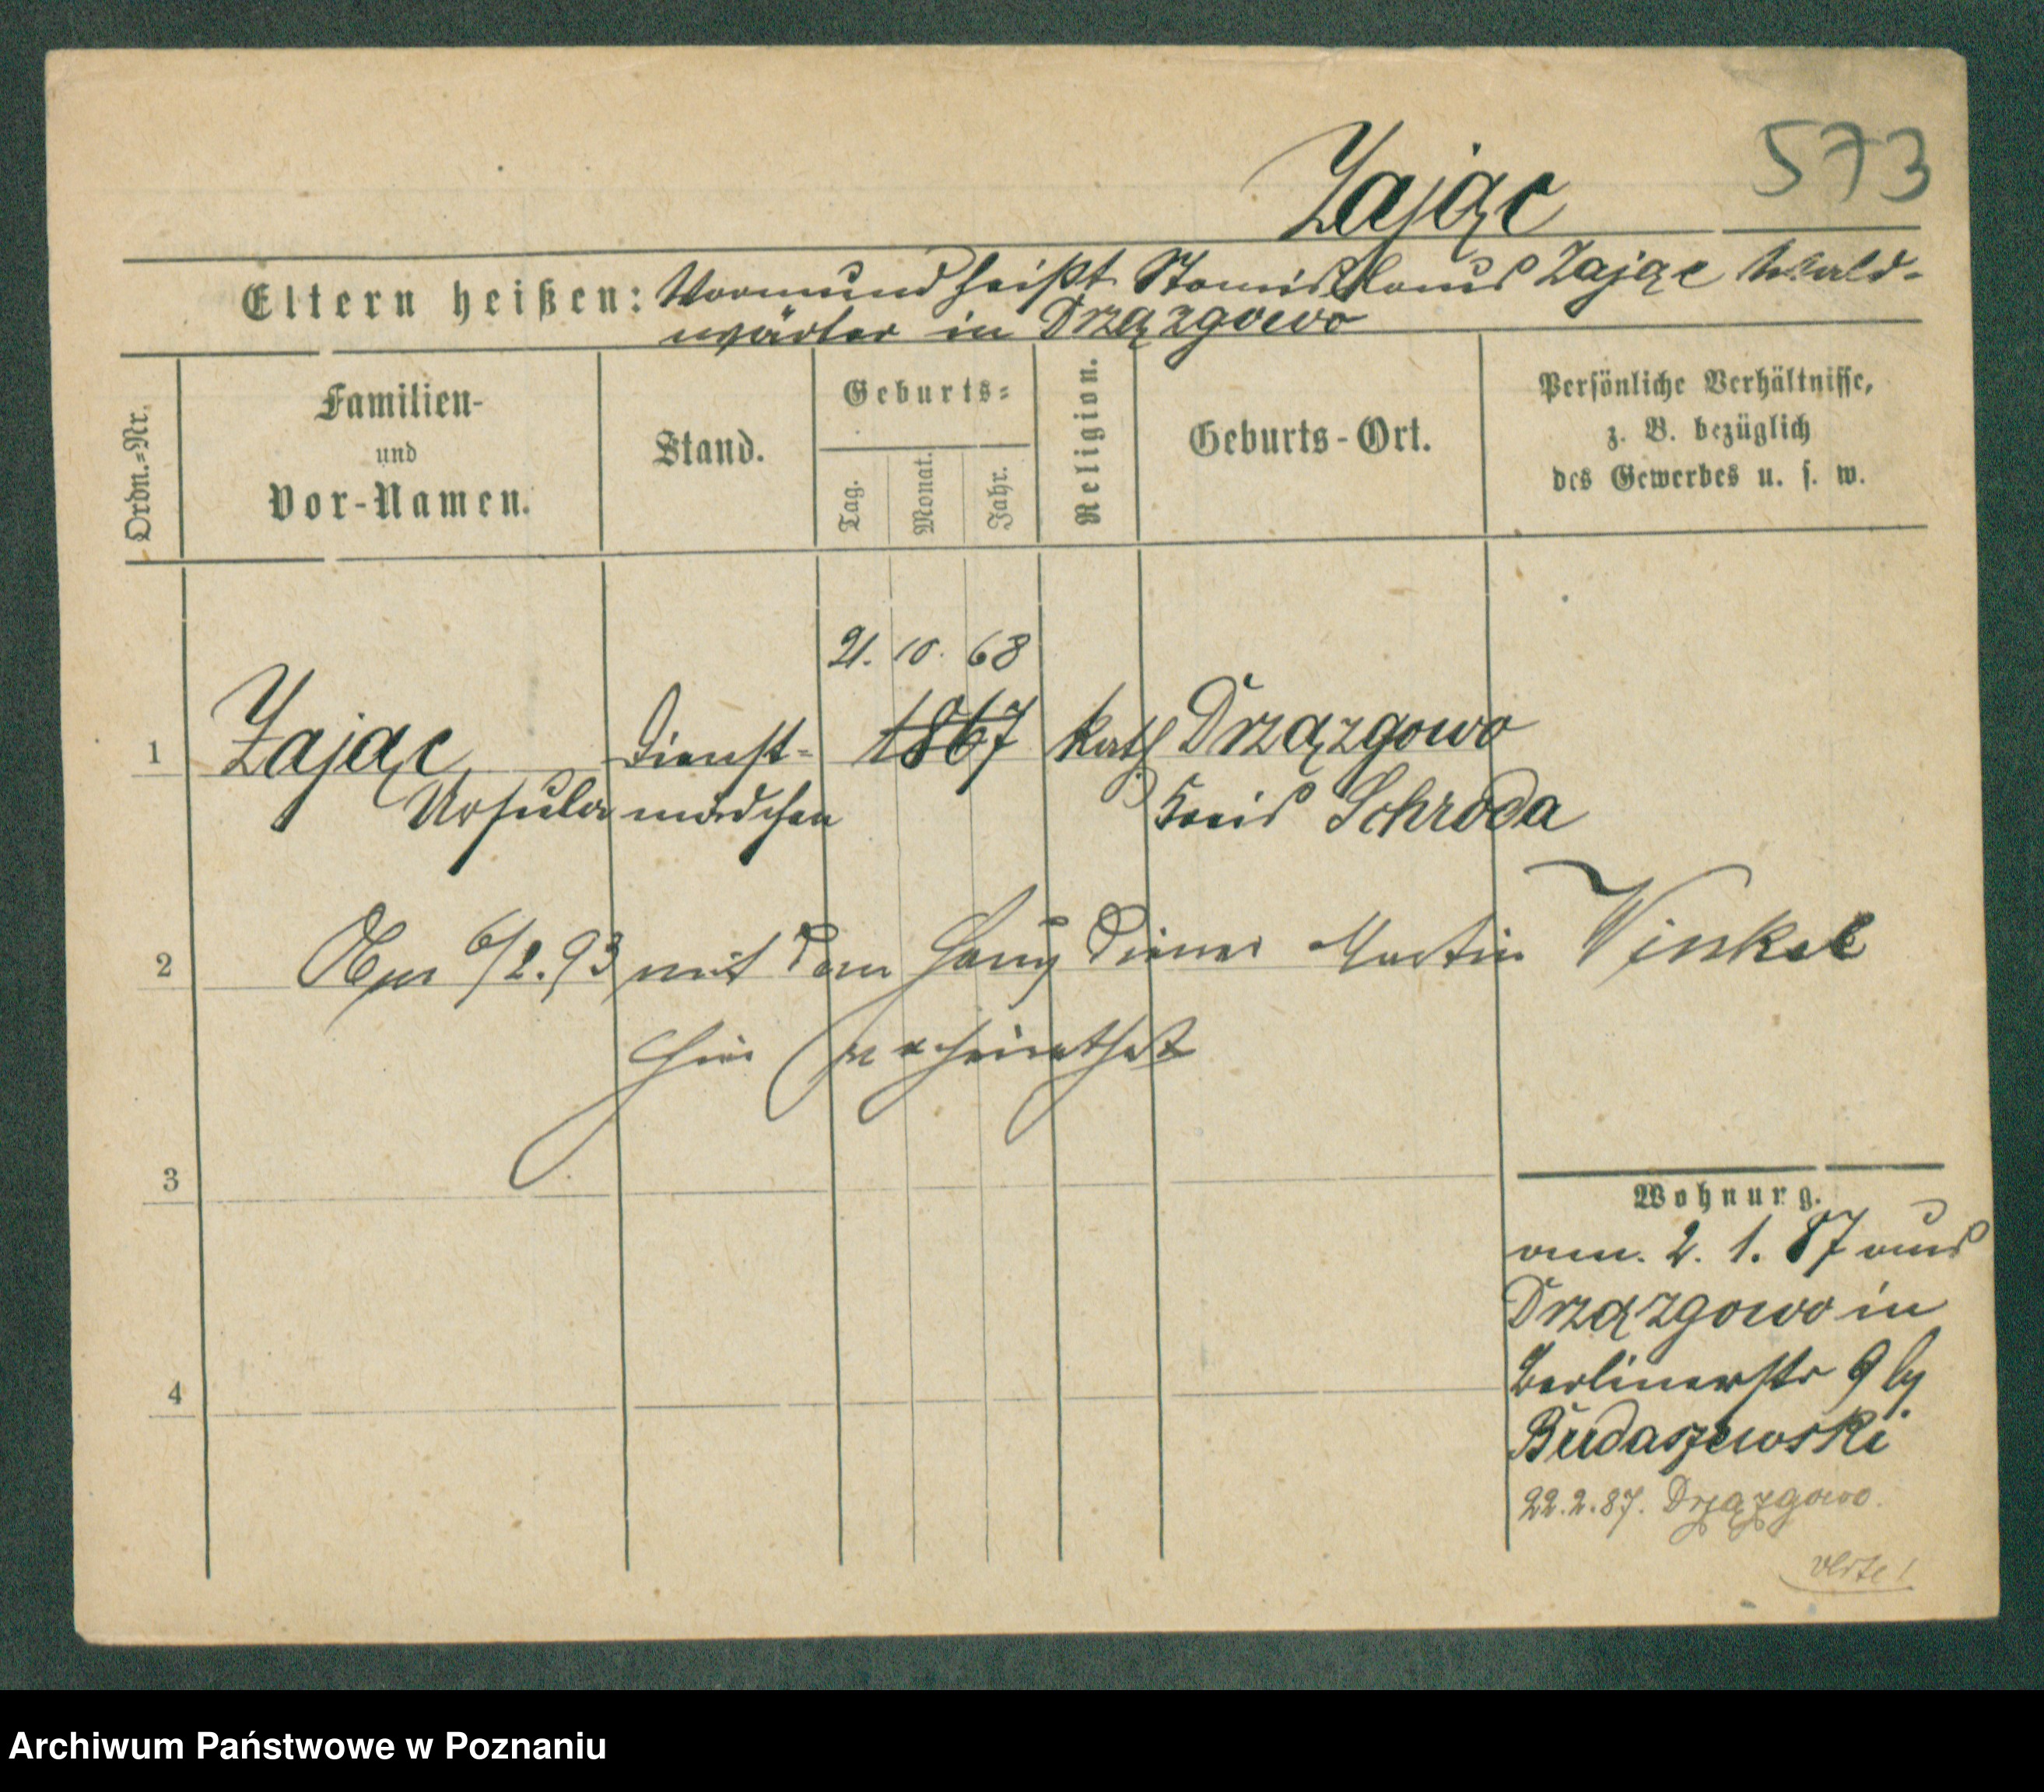 573
Zając
Eltern heißen: Vormund heißt Stanislaus Zając Wald-
wärter in Drzązgowo
Ordn.-Nr.
Familien-
und
Vor-Namen.
Stand.
Geburts-
Tag.
Monat.
Jahr.
Religion.
Geburts-Ort.
Persönliche Verhältnisse,
z. B. bezüglich
des Gewerbes u. s. w.
21. 10. 68
1 Zając Dienst- 1867 kath Drzązgowo
Ursula mädchen Kreis Schroda
2 6/2.93 mit dem Haus Diener Martin Winkel
hier verheirathet
3
Wohnung.
am. 2. 1. 87 aus
Drzązgowo in
4
Berlinerstr 9 by
Budaszewski
22.2.87. Drzązgowo.
Archiwum Państwowe w Poznaniu